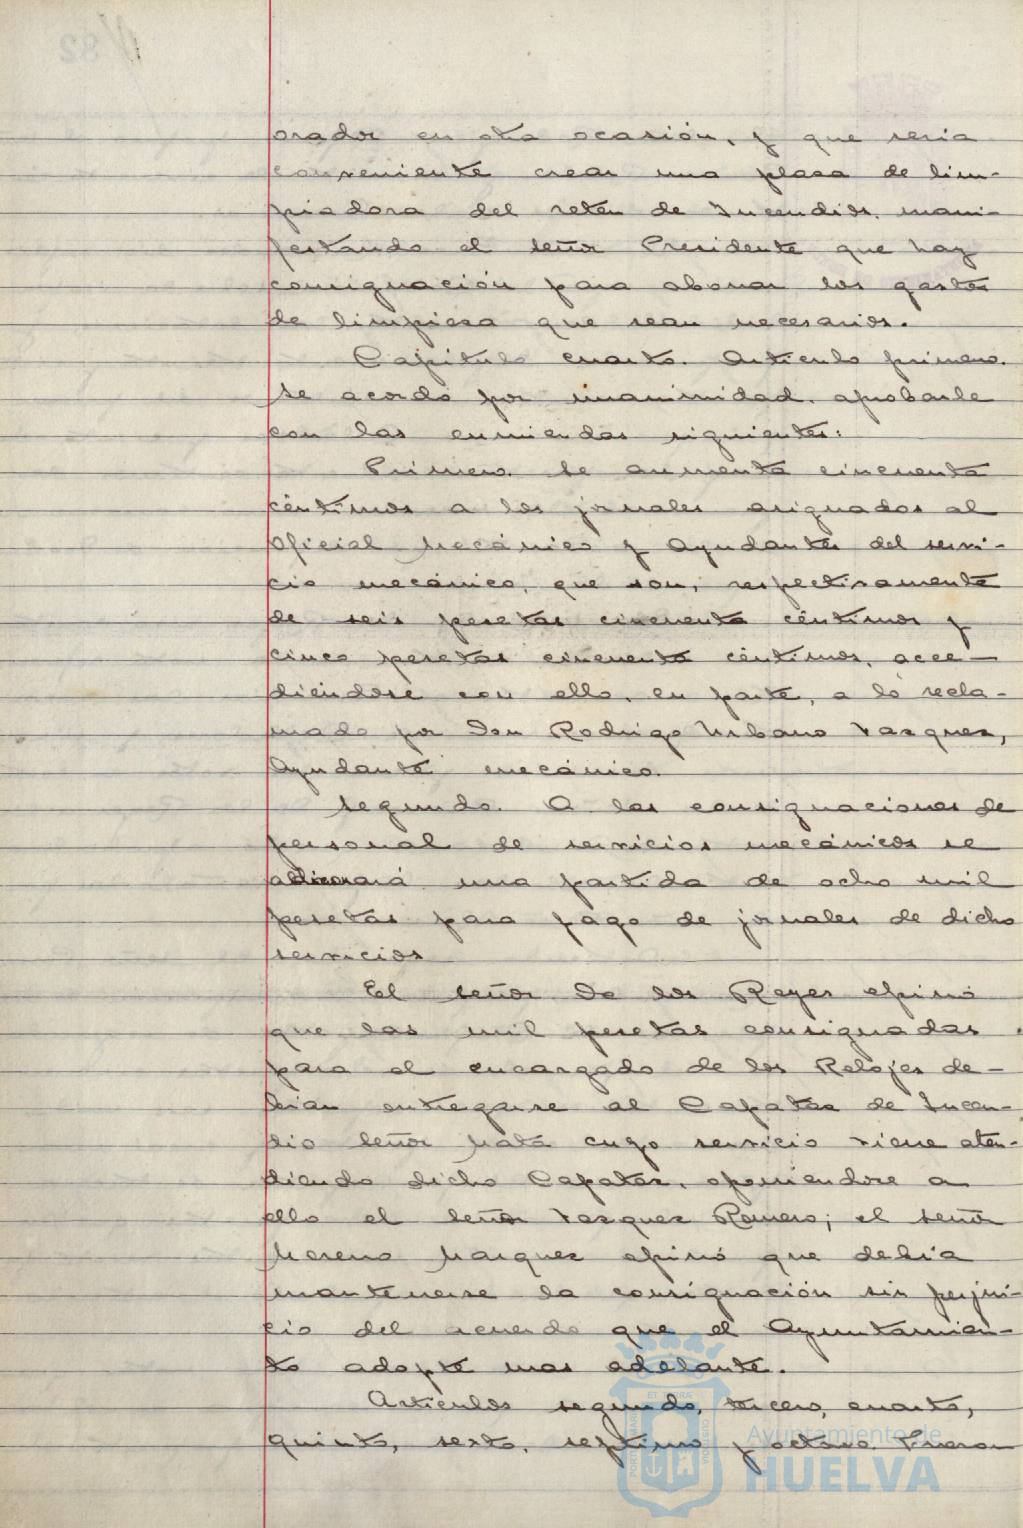 orador en otra ocasión, y que seria
conveniente crear una plasa de lim-
piadora del reten de Incendios. mani-
festando el señor Presidente que hay
consignación para abonar los gastos
de limpiesa que sean necesarios.
Capitulo cuarto. Articulo primero.
Se acordó por unanimidad. aprobarle
con las enmiendas siguientes:
Primero. Se aumenta cincuenta
céntimos a los jornales asignados al
Oficial Mecánico y Ayudantes del servi-
cio mecánico, que son, respectivamente
de seis pesetas cincuenta céntimos y
cinco pesetas cincuenta céntimos, acce-
diéndose con ello, en parte, a lo recla-
mado por Don Rodrigo Urbano Vasques,
Ayudante mecánico.
Segundo. A las consignaciones de
personal de servicios mecánicos se
adicionará una partida de ocho mil
pesetas para pago de jornales de dicho
servicios
El señor De los Reyes opinó
que las mil pesetas consignadas
para el encargado de los Relojes de-
bian entregarse al Capatas de Incen-
dio Señor Mata cuyo servicio viene aten-
diendo dicho Capatas. oponiendose a
ello el Señor Vasques Romero; el señor
Moreno Marques opinó que debía
mantenerse la consignación sin perjui-
cio del acuerdo que el Ayuntamien-
to adopte mas adelante.
Articulos segundo, tercero, cuarto,
quinto, sexto, septimo y octavo. Fueron
Ayuntamiento de
HUELVA